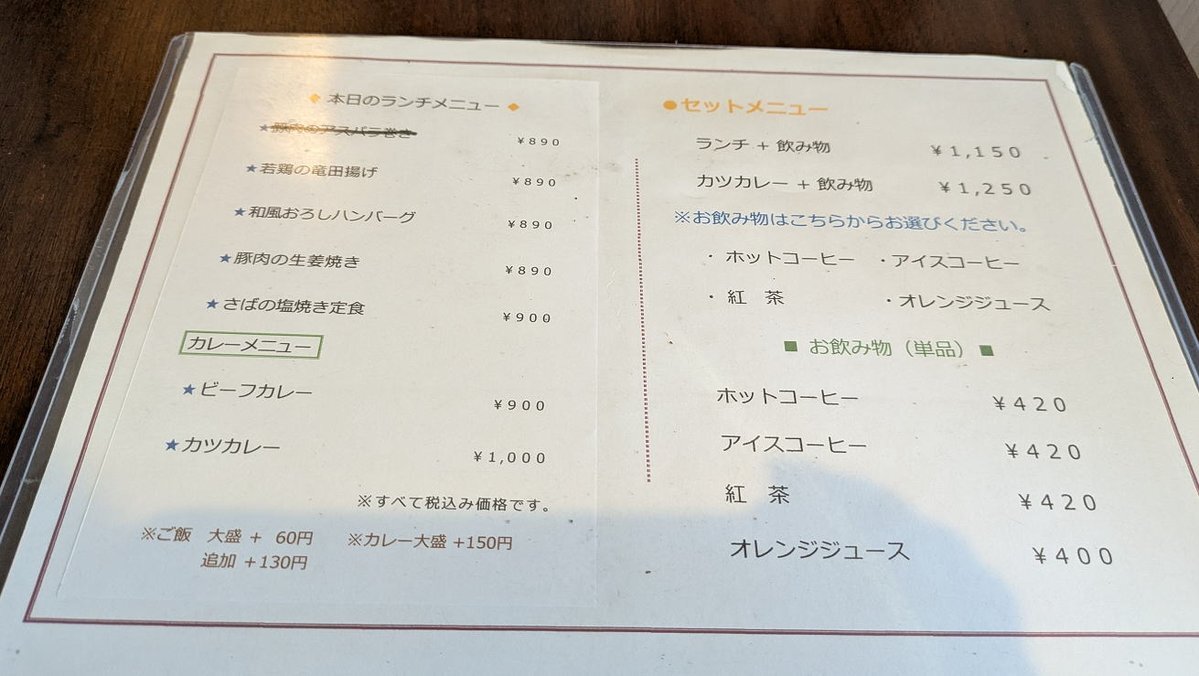 ◆ 本日のランチメニュー ◆
★豚肉のアスパラ巻き ￥890
★若鶏の竜田揚げ ￥890
★和風おろしハンバーグ ￥890
★豚肉の生姜焼き ￥890
★さばの塩焼き定食 ￥900
カレーメニュー
★ビーフカレー ￥900
★カツカレー ￥1,000
※すべて税込み価格です。
※ご飯　大盛＋ 60円　※カレー大盛＋150円
追加＋130円
●セットメニュー
ランチ＋飲み物 ￥1,150
カツカレー＋飲み物 ￥1,250
※お飲み物はこちらからお選びください。
・ホットコーヒー ・アイスコーヒー
・紅　茶 ・オレンジジュース
■ お飲み物（単品） ■
ホットコーヒー ￥420
アイスコーヒー ￥420
紅　茶 ￥420
オレンジジュース ￥400